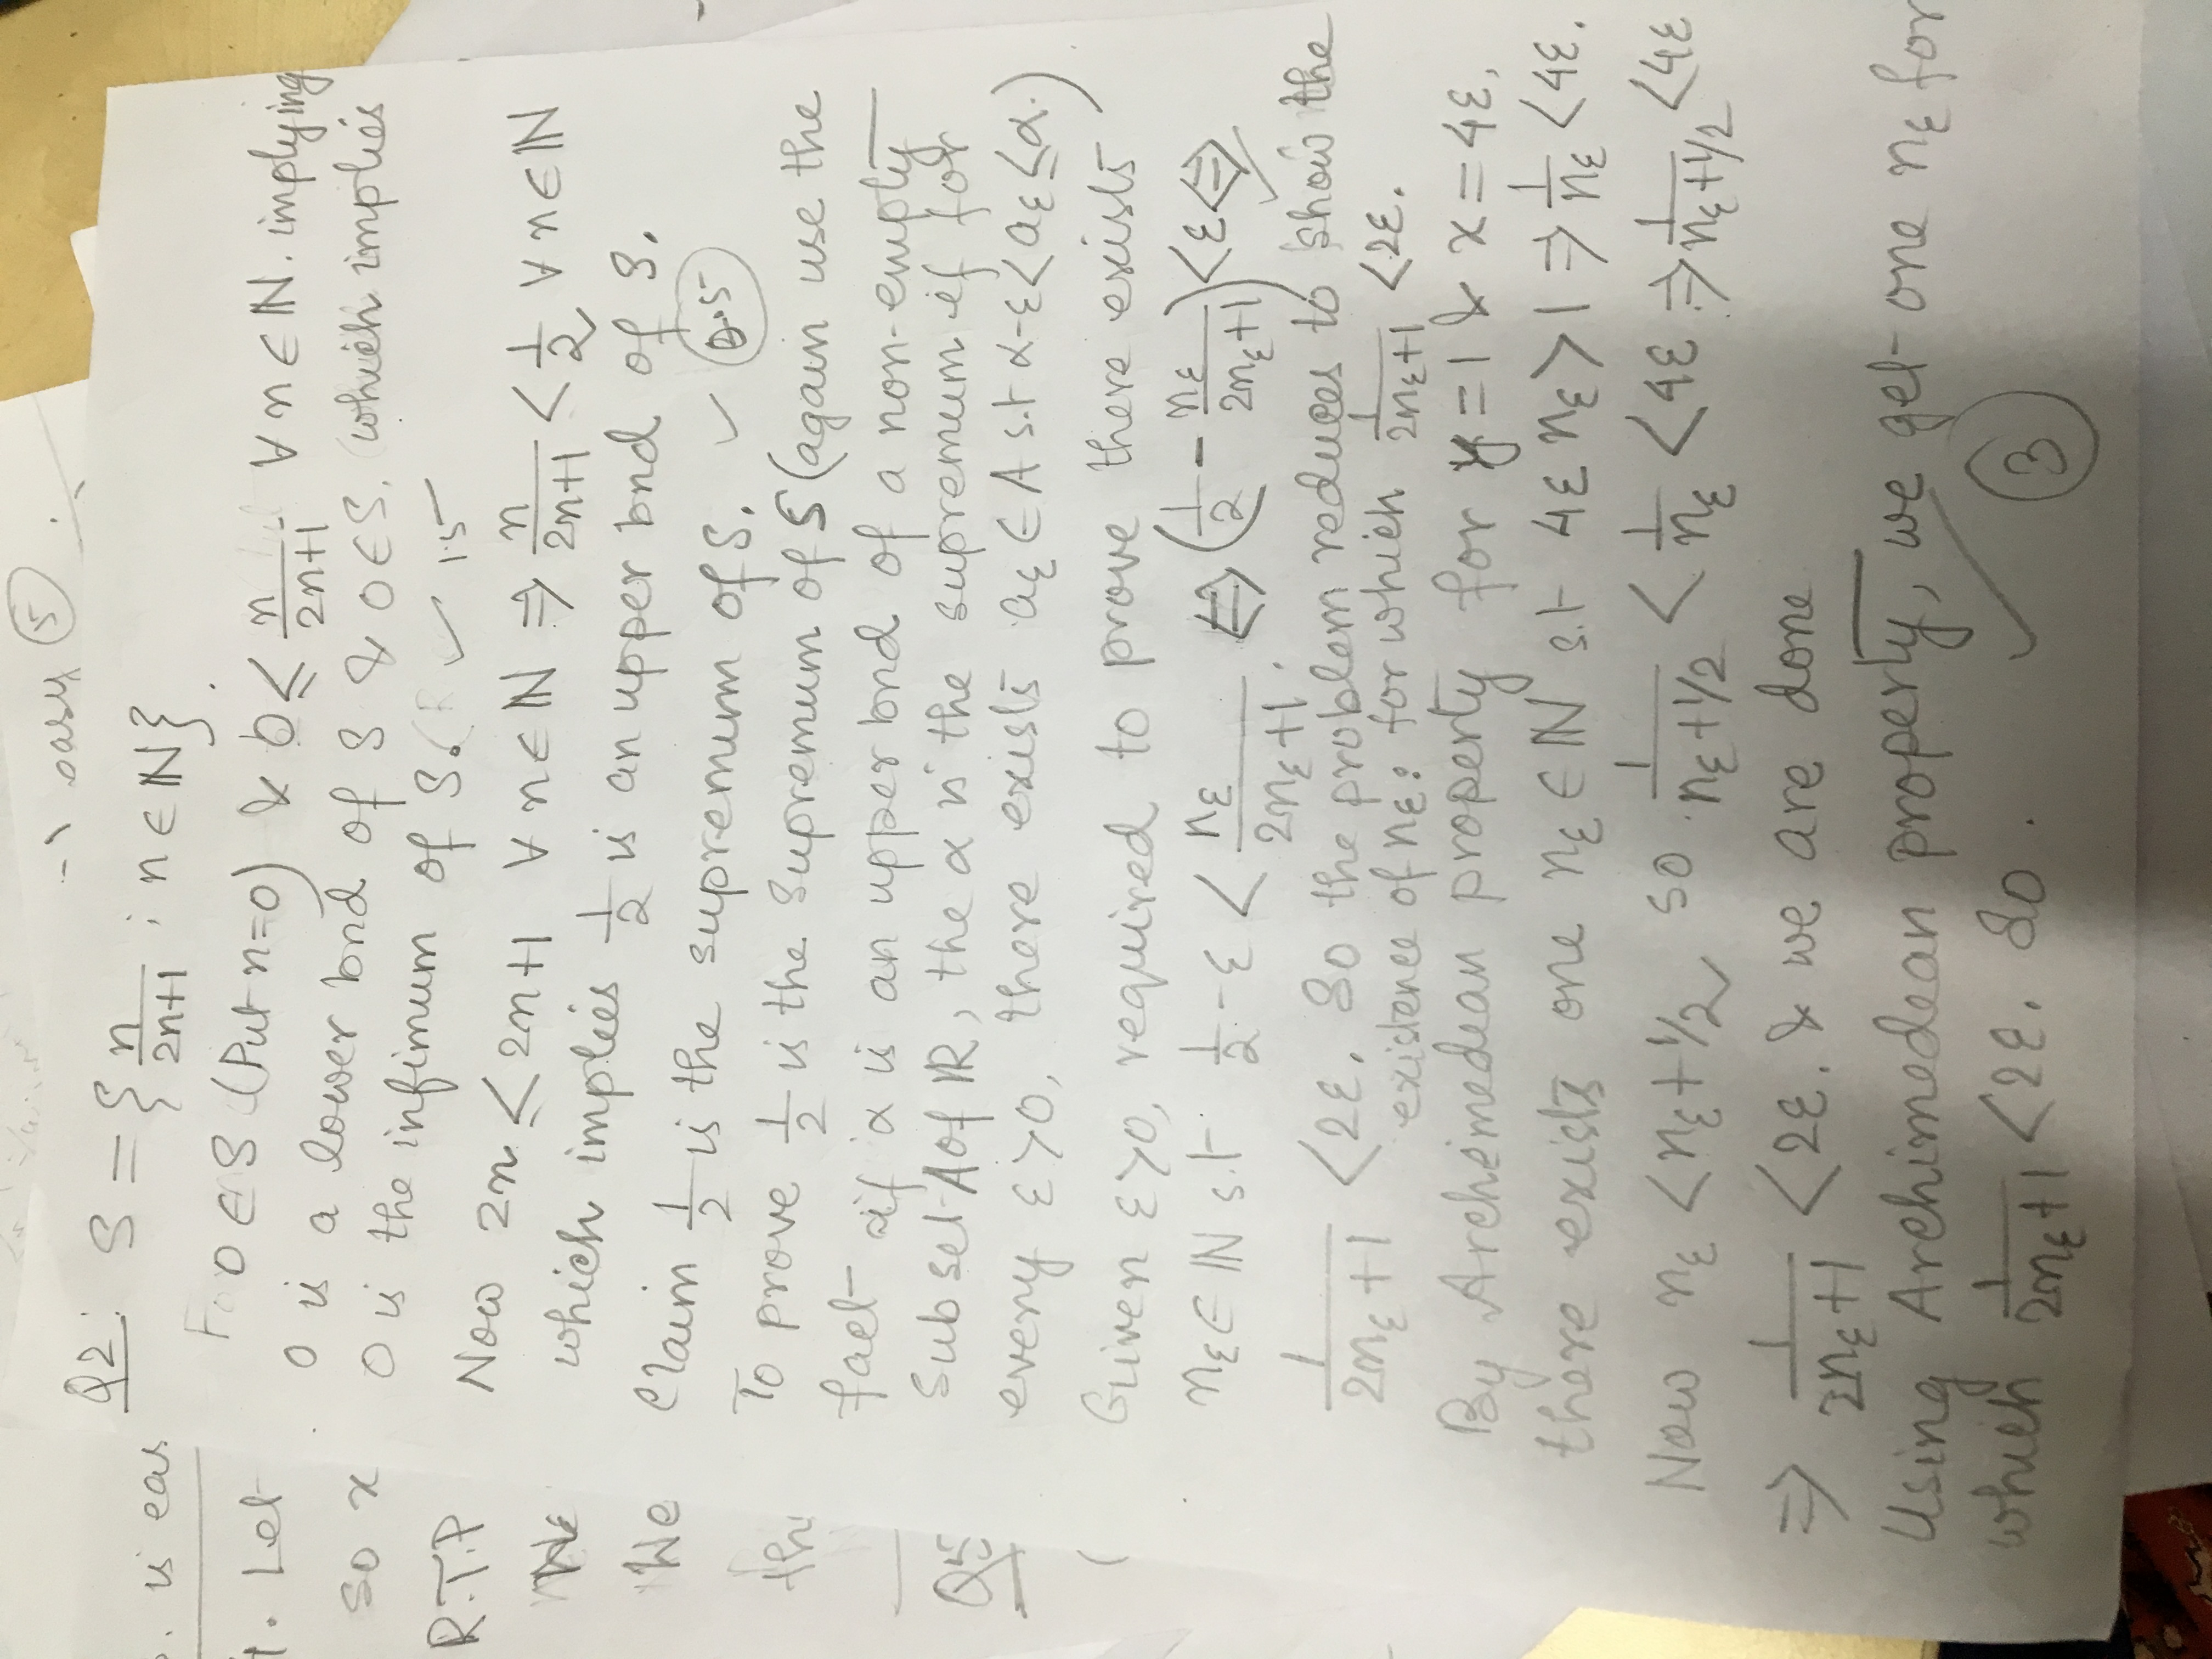 → easy (5)
Q2: S = { n/(2n+1) ; n ∈ ℕ }.
0 ∈ S (Put n=0) & 0 ≤ n/(2n+1) ∀ n ∈ ℕ. implying
0 is a lower bnd of S & 0 ∈ S, which implies
0 is the infimum of S. ✓ 1.5
Now 2n ≤ 2n+1 ∀ n ∈ ℕ ⇒ n/(2n+1) < 1/2 ∀ n ∈ ℕ
which implies 1/2 is an upper bnd of S.
Claim 1/2 is the supremum of S. ✓ (0.5)
To prove 1/2 is the supremum of S (again use the
fact if α is an upper bnd of a non-empty
subset A of ℝ, the α is the supremum if for
every ε>0, there exists aε ∈ A s.t α-ε < aε ≤ α.)
Given ε>0, required to prove there exists
nε ∈ ℕ s.t 1/2 - ε < nε/(2nε+1). ⇔ (1/2 - nε/(2nε+1)) < ε ⇔ ✓
1/(2nε+1) < 2ε. So the problem reduces to show the
existence of nε: for which 1/(2nε+1) < 2ε.
By Archimedean property for y = 1 & x = 4ε,
there exists one nε ∈ ℕ s.t 4ε nε > 1 ⇒ 1/nε < 4ε.
Now nε < nε + 1/2, so 1/(nε+1/2) < 1/nε < 4ε ⇒ 1/(nε+1/2) < 4ε
⇒ 1/(2nε+1) < 2ε. & we are done
Using Archimedean property, we get one nε for
which 1/(2nε+1) < 2ε. So . ✓ (3)
is eas
1. Let
so x
R.T.P
We
We
th
Q5
(